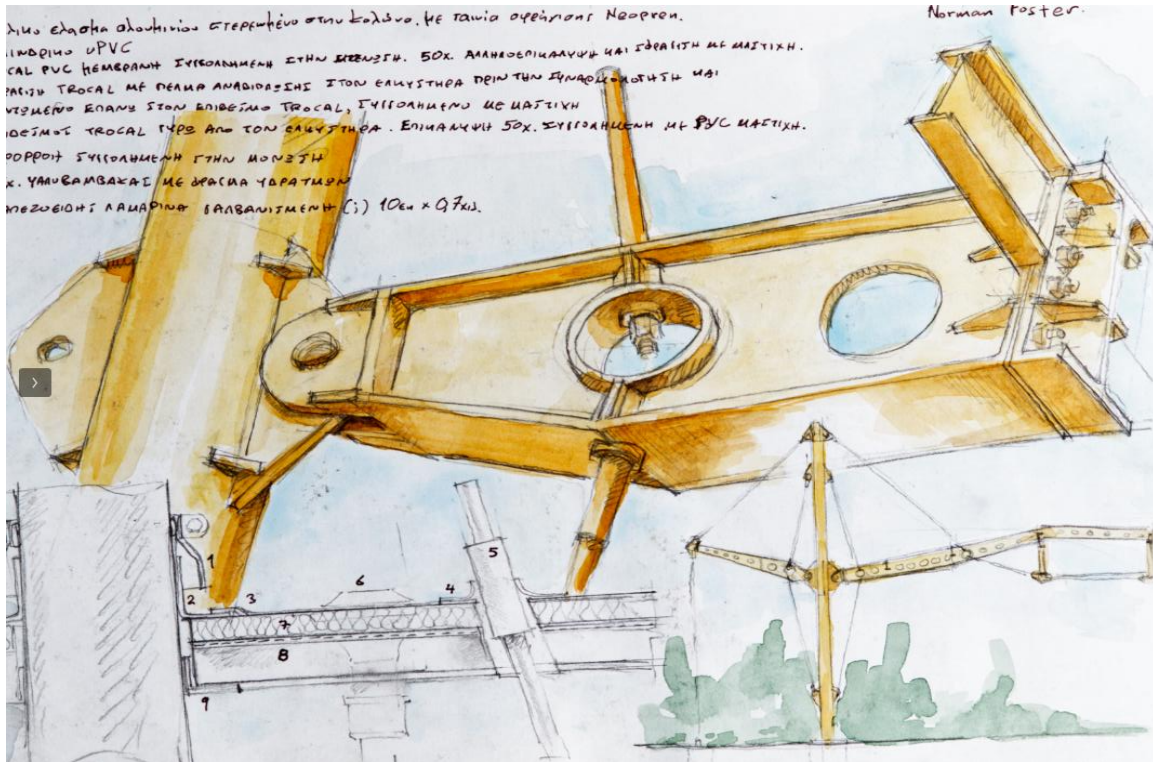 Norman Foster.
λικο έλασμα αλουμινίου στερεωμένο στην κολώνα, με ταινία σφράγισης Neopren.
ΙΝΔΡΙΚΟ uPVC
CAL PVC ΜΕΜΒΡΑΝΗ ΣΥΓΚΟΛΛΗΜΕΝΗ ΣΤΗΝ ΜΟΝΩΣΗ. 50χ. ΑΛΛΗΛΟΕΠΙΚΑΛΥΨΗ ΚΑΙ ΣΦΡΑΓΙΣΗ ΜΕ ΜΑΣΤΙΧΗ.
TROCAL ΜΕ ΠΕΛΜΑ ΣΤΟΝ ΕΛΚΥΣΤΗΡΑ ΠΡΙΝ ΤΗΝ ΣΥΝΑΡΜΟΛΟΓΗΣΗ ΚΑΙ
ΕΠΑΝΩ ΣΤΟΝ ΕΠΙΔΕΣΜΟ TROCAL, ΣΥΓΚΟΛΗΜΕΝΟ ΜΕ ΜΑΣΤΙΧΗ
ΙΔΕΣΜΟΣ TROCAL ΓΥΡΩ ΑΠΟ ΤΟΝ ΕΛΚΥΣΤΗΡΑ. ΕΠΙΚΑΛΥΨΗ 50χ. ΣΥΓΚΟΛΗΜΕΝΗ ΜΕ PVC ΜΑΣΤΙΧΗ.
ΟΡΡΟΗ ΣΥΓΚΟΛΗΜΕΝΗ ΣΤΗΝ ΜΟΝΩΣΗ
χ. ΥΑΛΟΒΑΜΒΑΚΑΣ ΜΕ ΦΡΑΓΜΑ ΥΔΡΑΤΜΩΝ
ΑΠΕΖΟΕΙΔΗΣ ΛΑΜΑΡΙΝΑ ΓΑΛΒΑΝΙΣΜΕΝΗ (;) 10εκ × 0,7χιλ.
1
2
3
4
5
6
7
8
9
1